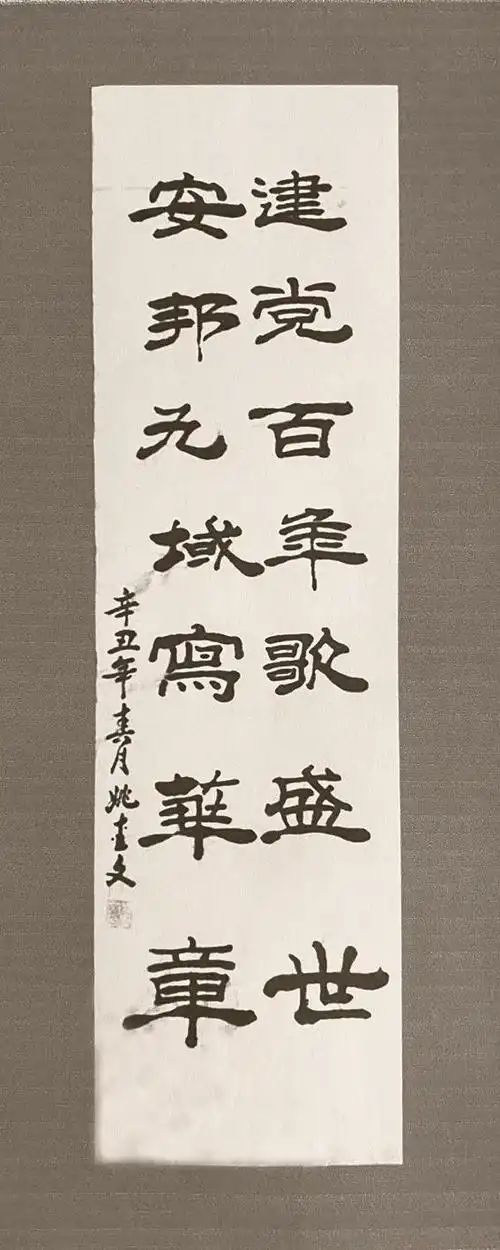 建党百年歌盛世
安邦九域寫華章
辛丑年春月姚奎文